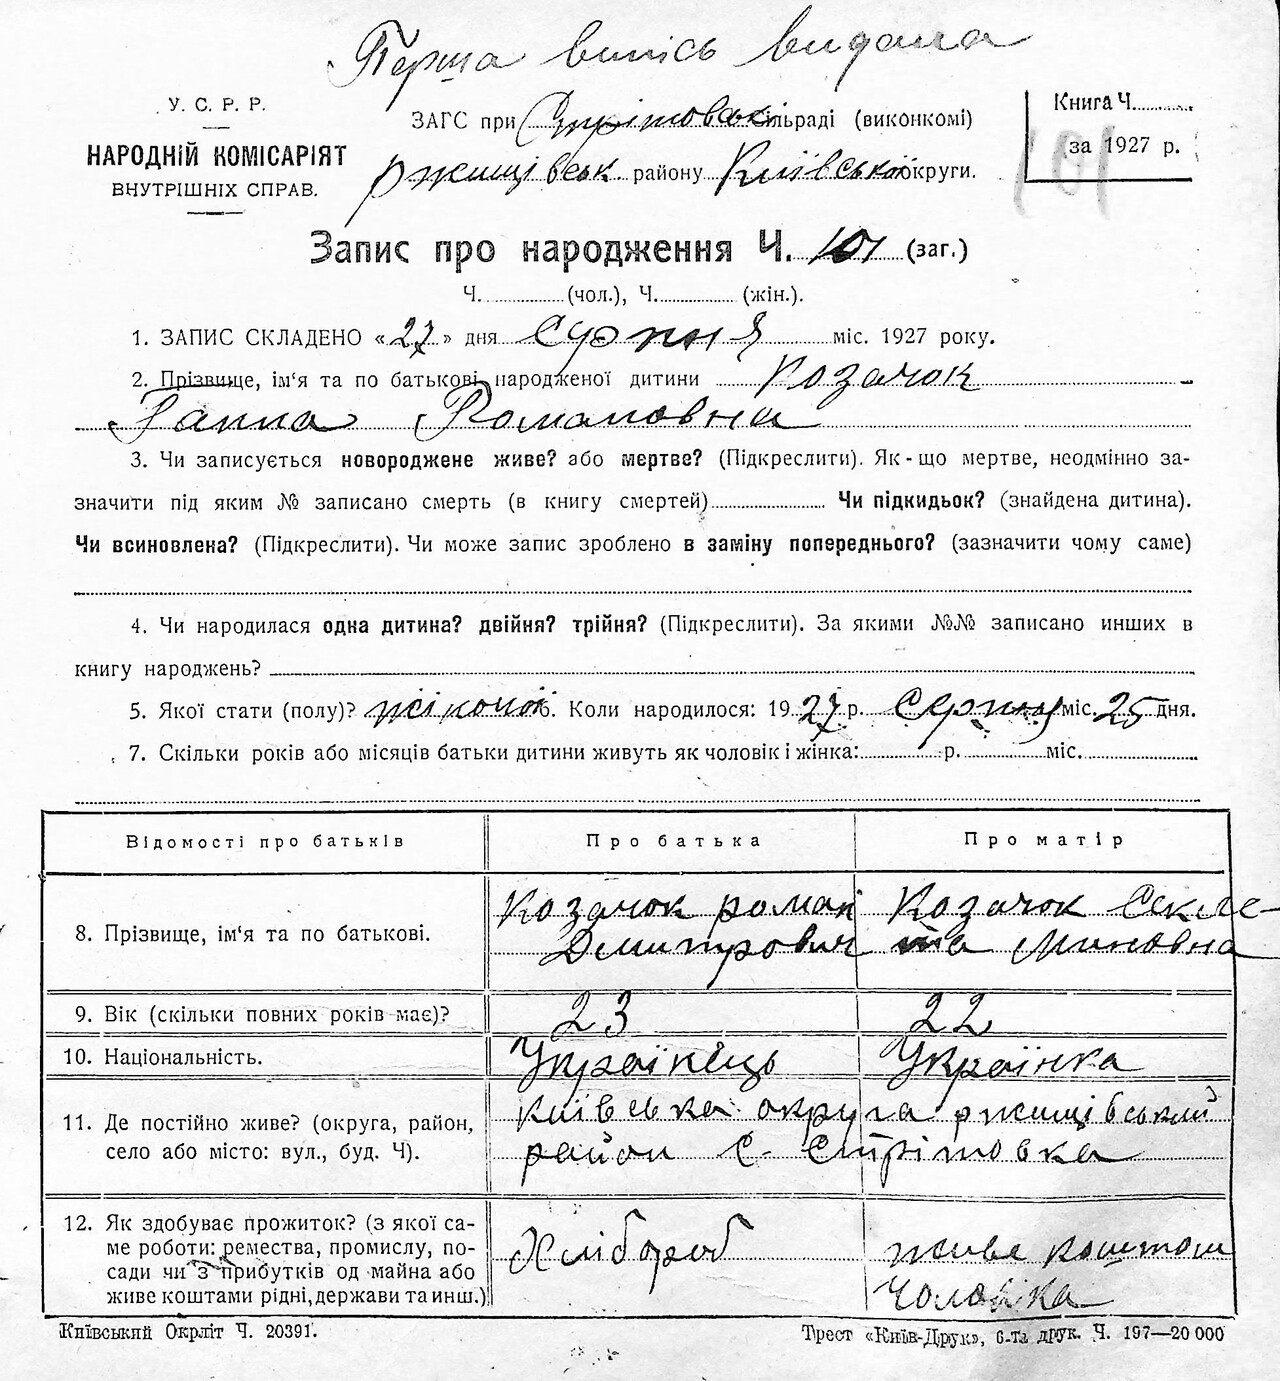 Перша випись видана
У. С. Р. Р.
НАРОДНІЙ КОМІСАРІЯТ
ВНУТРІШНІХ СПРАВ.
ЗАГС при Стрітовськ сільраді (виконкомі)
Ржищівськ. району Київської округи.
Книга Ч.
за 1927 р.
101
Запис про народження Ч. 101 (заг.)
Ч. (чол.), Ч. (жін.).
1. ЗАПИС СКЛАДЕНО «27» дня Серпня міс. 1927 року.
2. Прізвище, ім‘я та по батькові народженої дитини Козачок
Ганна Романовна
3. Чи записується новороджене живе? або мертве? (Підкреслити). Як-що мертве, неодмінно за-
значити під яким № записано смерть (в книгу смертей) Чи підкидьок? (знайдена дитина).
Чи всиновлена? (Підкреслити). Чи може запис зроблено в заміну попереднього? (зазначити чому саме)
4. Чи народилася одна дитина? двійня? трійня? (Підкреслити). За якими №№ записано инших в
книгу народжень?
5. Якої стати (полу)? жіночої 6. Коли народилося: 1927 р. Серпня міс. 25 дня.
7. Скільки років або місяців батьки дитини живуть як чоловік і жінка: р. міс.
Відомості про батьків Про батька Про матір
8. Прізвище, ім‘я та по батькові. Козачок роман Дмитрович Козачок Секле-
та Миновна
9. Вік (скільки повних років має)? 23 22
10. Національність. Українець Українка
11. Де постійно живе? (округа, район,
село або місто: вул., буд. Ч). Київська округа ржищівський
район с. Стрітовка
12. Як здобуває прожиток? (з якої са-
ме роботи: ремества, промислу, по-
сади чи з прибутків од майна або
живе коштами рідні, держави та инш.) Хлібороб живе коштом
Чоловіка
Київський Окрліт Ч. 20391.
Трест «Київ-Друк», 6-та друк. Ч. 197—20 000